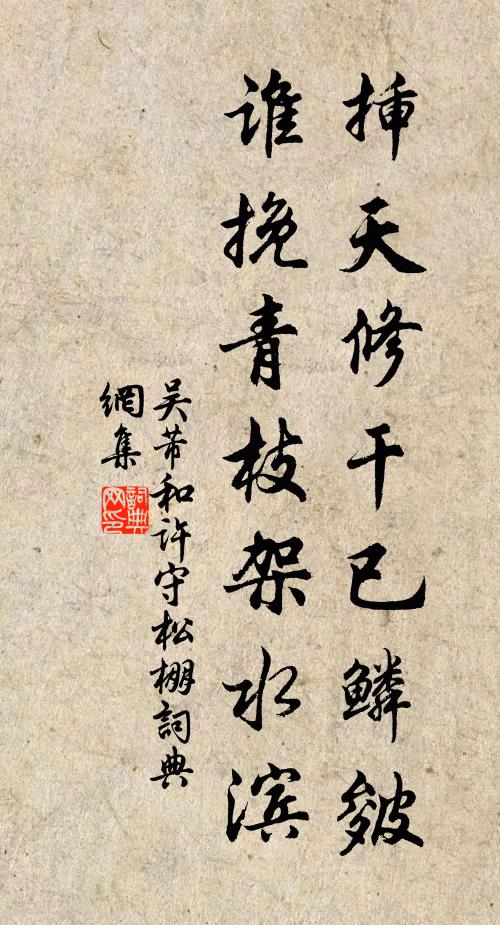 挿天修干已鳞皴
谁挽青枝架水滨
吴芾和许守松棚詞典
網集
詞典网印